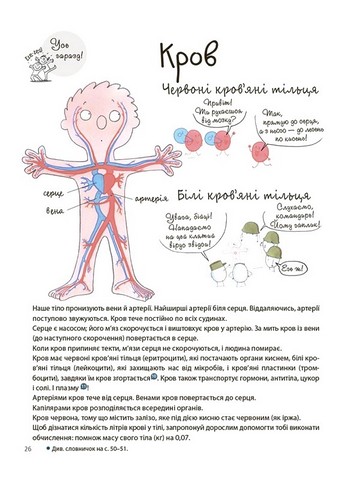 Усе
гаразд!
Кров
Червоні кров'яні тільця
Привіт!
Ти рухаєшся
від мозку?
Так,
прямую до серця,
а з нього — до легень
по кисень!
серце
вена
артерія
Білі кров'яні тільця
Увага, бійці!
Нападаємо
на цей клятий
вірус звідси!
Слухаємо,
командире!
Йому гаплик!
Еге ж!
Наше тіло пронизують вени й артерії. Найширші артерії біля серця. Віддаляючись, артерії
поступово звужуються. Кров тече постійно по всіх судинах.
Серце є насосом; його м'яз скорочується і виштовхує кров у артерію. За мить кров із вени
(до наступного скорочення) повертається в серце.
Коли кров припиняє текти, м'язи серця не скорочуються, и людина помирає.
Кров має червоні кров'яні тільця (еритроцити), які постачають органи киснем, білі кро-
в'яні тільця (лейкоцити), які захищають нас від мікробів, і кров'яні пластинки (тром-
боцити), завдяки їм кров згортається. Кров також транспортує гормони, антитіла, цукор
і солі. І плазму
Артеріями кров тече від серця. Венами кров повертається до серця.
Капілярами кров розподіляється всередині органів.
Кров червона, тому що містить залізо, яке під дією кисню стає червоним (як іржа).
Щоб дізнатися кількість літрів крові у тілі, запропонуй дорослим допомогти тобі виконати
обчислення: помнож масу свого тіла (кг) на 0,07.
26
● Див. словничок на с. 50–51.